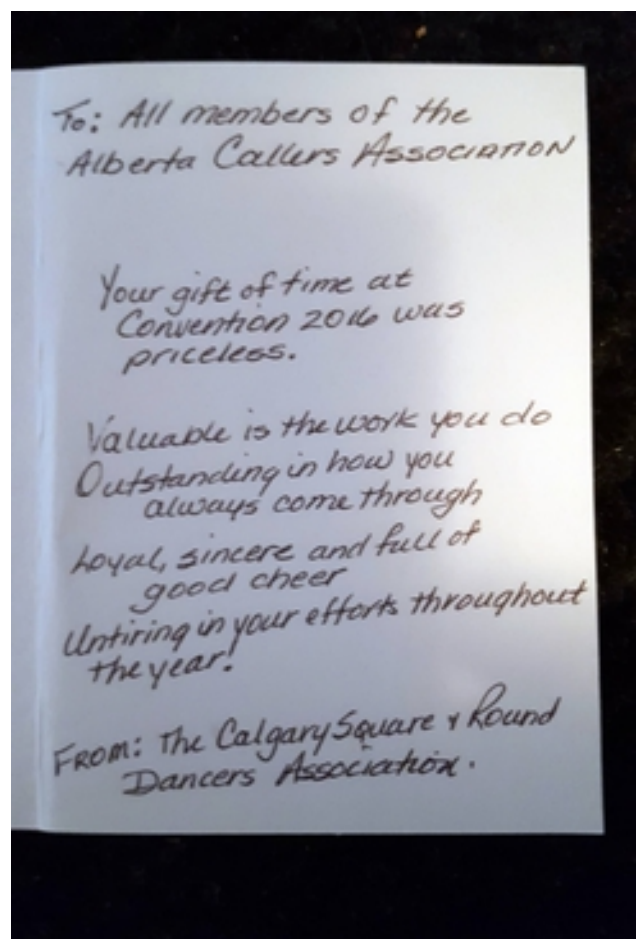 To: All members of the
Alberta Callers Association
Your gift of time at
Convention 2016 was
priceless.
Valuable is the work you do
Outstanding in how you
always come through
Loyal, sincere and full of
good cheer
Untiring in your efforts throughout
the year!
From: The Calgary Square & Round
Dancers Association.